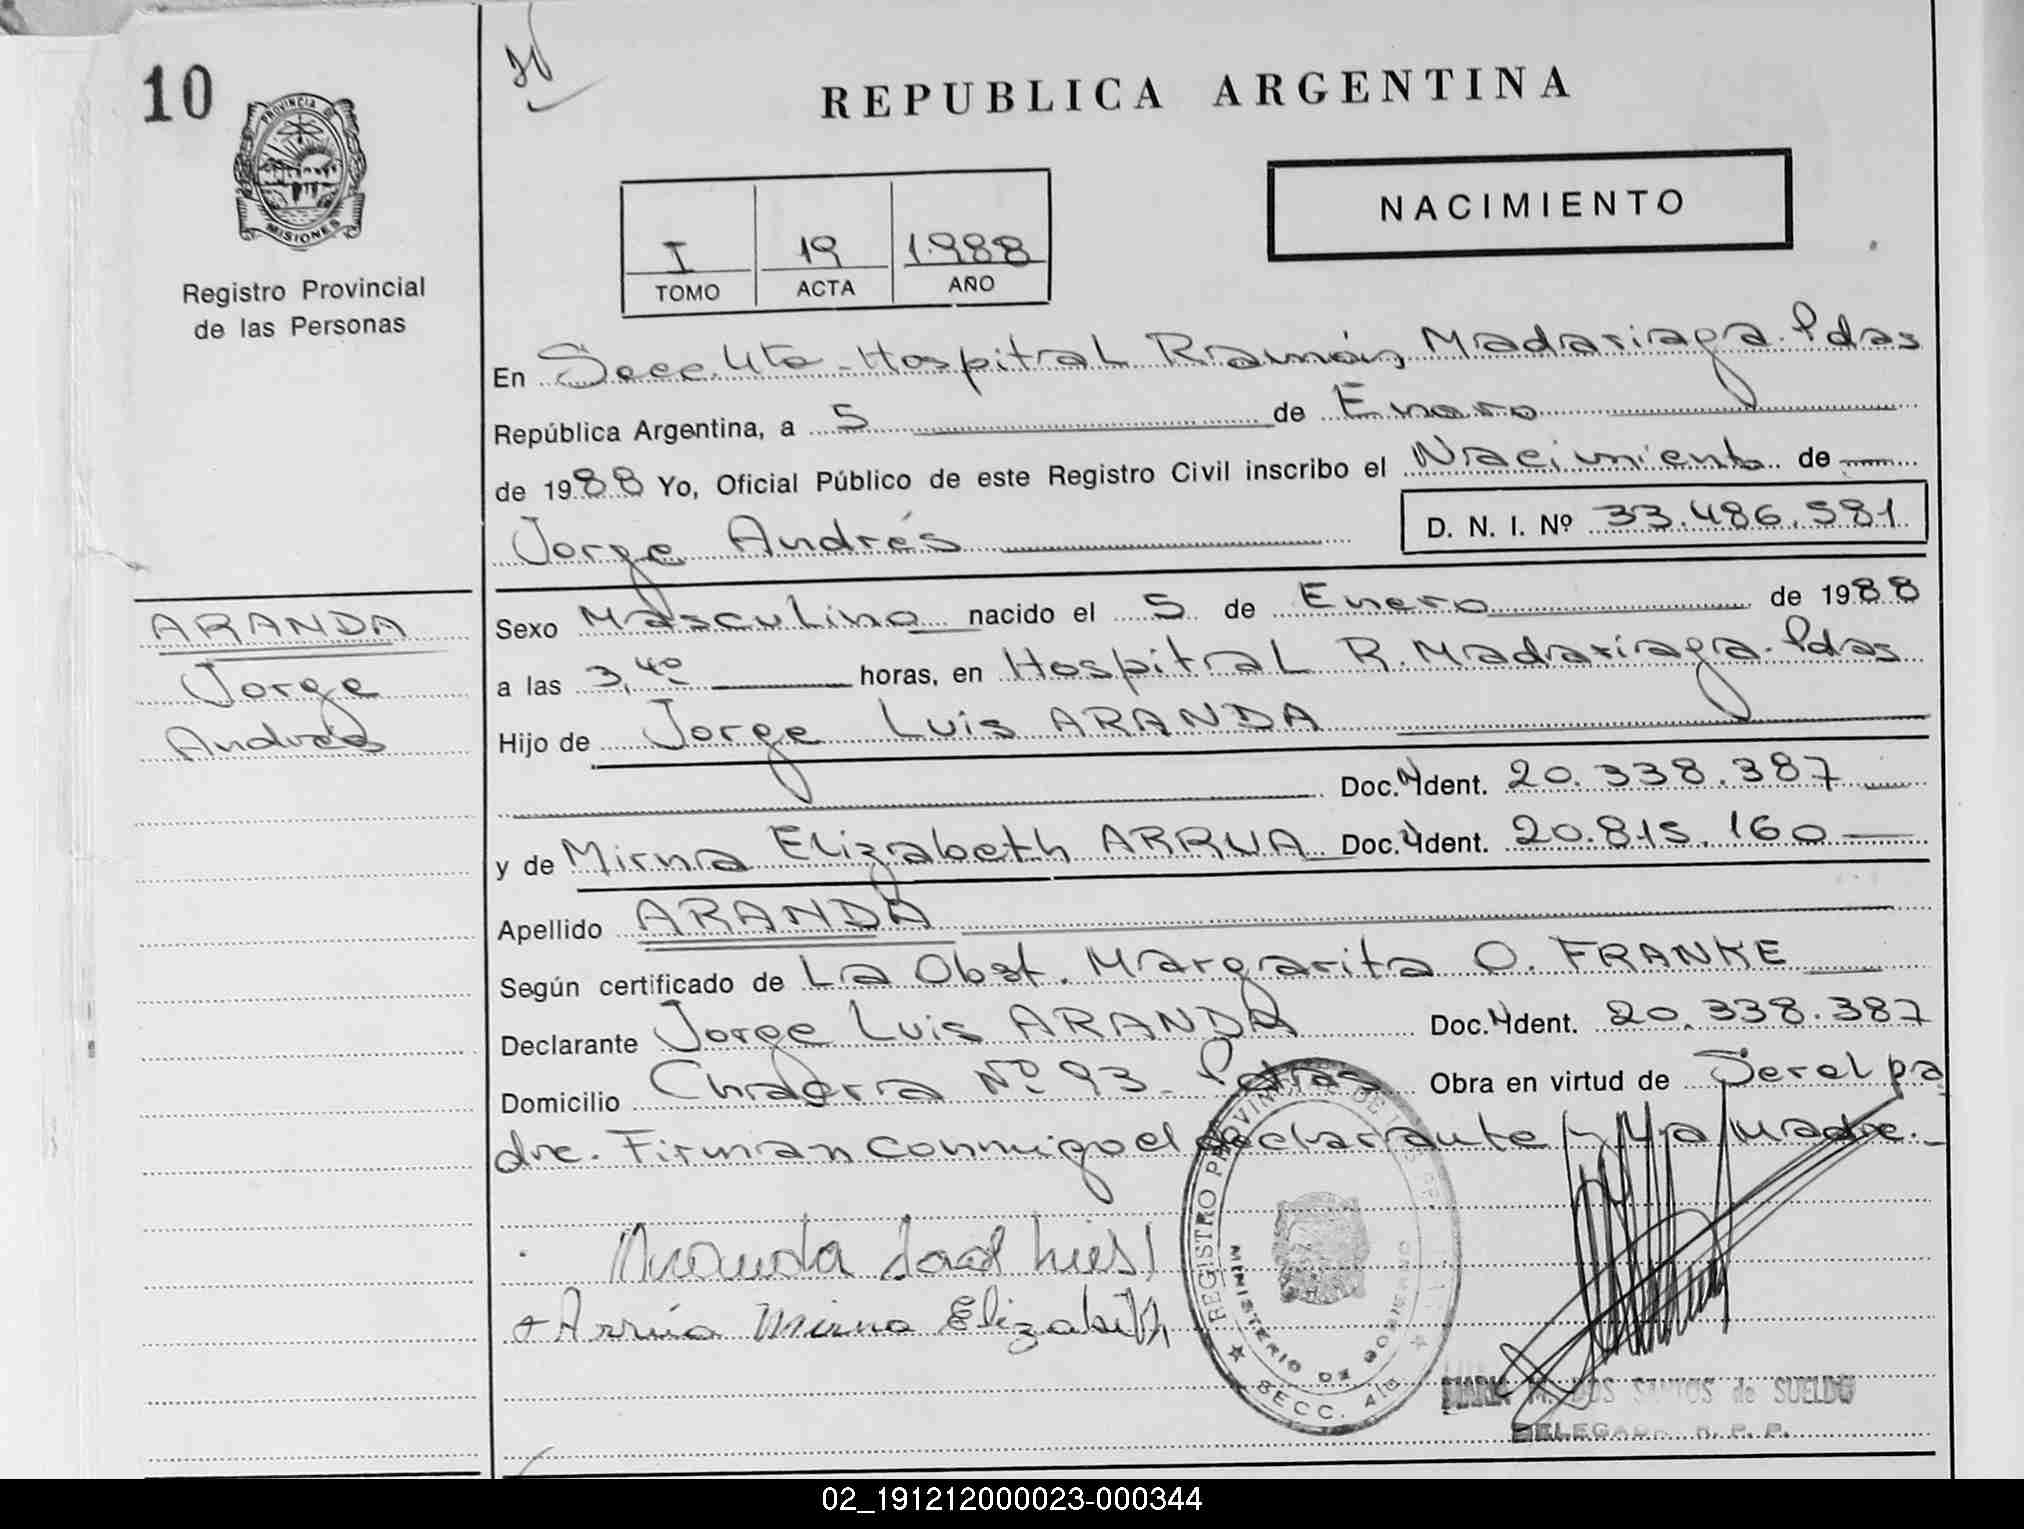 10
PROVINCIA DE
MISIONES
Registro Provincial
de las Personas
REPUBLICA ARGENTINA
NACIMIENTO
I 19 1988
TOMO ACTA AÑO
En Secc. 4ta - Hospital Ramón Madariaga. Pdas
República Argentina, a 5 de Enero
de 1988 Yo, Oficial Público de este Registro Civil inscribo el Nacimiento de
Jorge Andrés D. N. I. Nº 33.486.581
ARANDA
Jorge
Andrés
Sexo Masculino nacido el 5 de Enero de 1988
a las 3,40 horas, en Hospital R. Madariaga. Pdas
Hijo de Jorge Luis ARANDA
Doc. Ident. 20.338.387
y de Mirna Elizabeth ARRUA Doc. Ident. 20.815.160
Apellido ARANDA
Según certificado de La Obst. Margarita O. FRANKE
Declarante Jorge Luis ARANDA Doc. Ident. 20.338.387
Domicilio Chacra Nº 93 - Pdas Obra en virtud de Ser el pa
dre. Firman conmigo el declarante y la madre.
Arrúa Mirna Elizabeth
REGISTRO PROVINCIAL DE LAS PERS
MINISTERIO DE GOBIERNO
SECC. 4ta
M. DOS SANTOS de SUELDO
DELEGADA R. P. P.
02_191212000023-000344